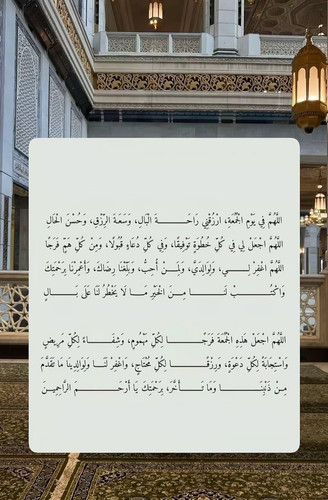 اللَّهُمَّ فِي يَوْمِ الْجُمُعَةِ، ارْزُقْنِي رَاحَـــةَ الْبَالِ، وَسَعَةَ الرِّزْقِ، وَحُسْنَ الْحَالِ
اللَّهُمَّ اجْعَلْ لِي فِي كُلِّ خُطْوَةٍ تَوْفِيقًا، وَفِي كُلِّ دُعَاءٍ قَبُولًا، وَمِنْ كُلِّ هَمٍّ فَرَجًا
اللَّهُمَّ اغْفِرْ لِـــي، وَلِوَالِدَيَّ، وَلِمَـــنْ أُحِبُّ، وَبَلِّغْنَا رِضَاكَ، وَأَغْمِرْنَا بِرَحْمَتِكَ
وَاكْتُـــبْ لَنَـــا مِـــنَ الْخَيْرِ مَـــا لَا يَخْطُرُ لَنَا عَلَى بَـــالٍ
اللَّهُمَّ اجْعَلْ هَذِهِ الْجُمُعَةَ فَرَجًـــا لِكُلِّ مَهْمُومٍ، وَشِفَـــاءً لِكُلِّ مَرِيضٍ
وَاسْتِجَابَةً لِكُلِّ دَعْوَةٍ، وَرِزْقًـــا لِكُلِّ مُحْتَاجٍ، وَاغْفِرْ لَنَـــا وَلِوَالِدِينَا مَا تَقَدَّمَ
مِـــنْ ذَنْبِنَـــا وَمَا تَـــأَخَّرَ، بِرَحْمَتِكَ يَا أَرْحَـــمَ الرَّاحِمِيـــنَ